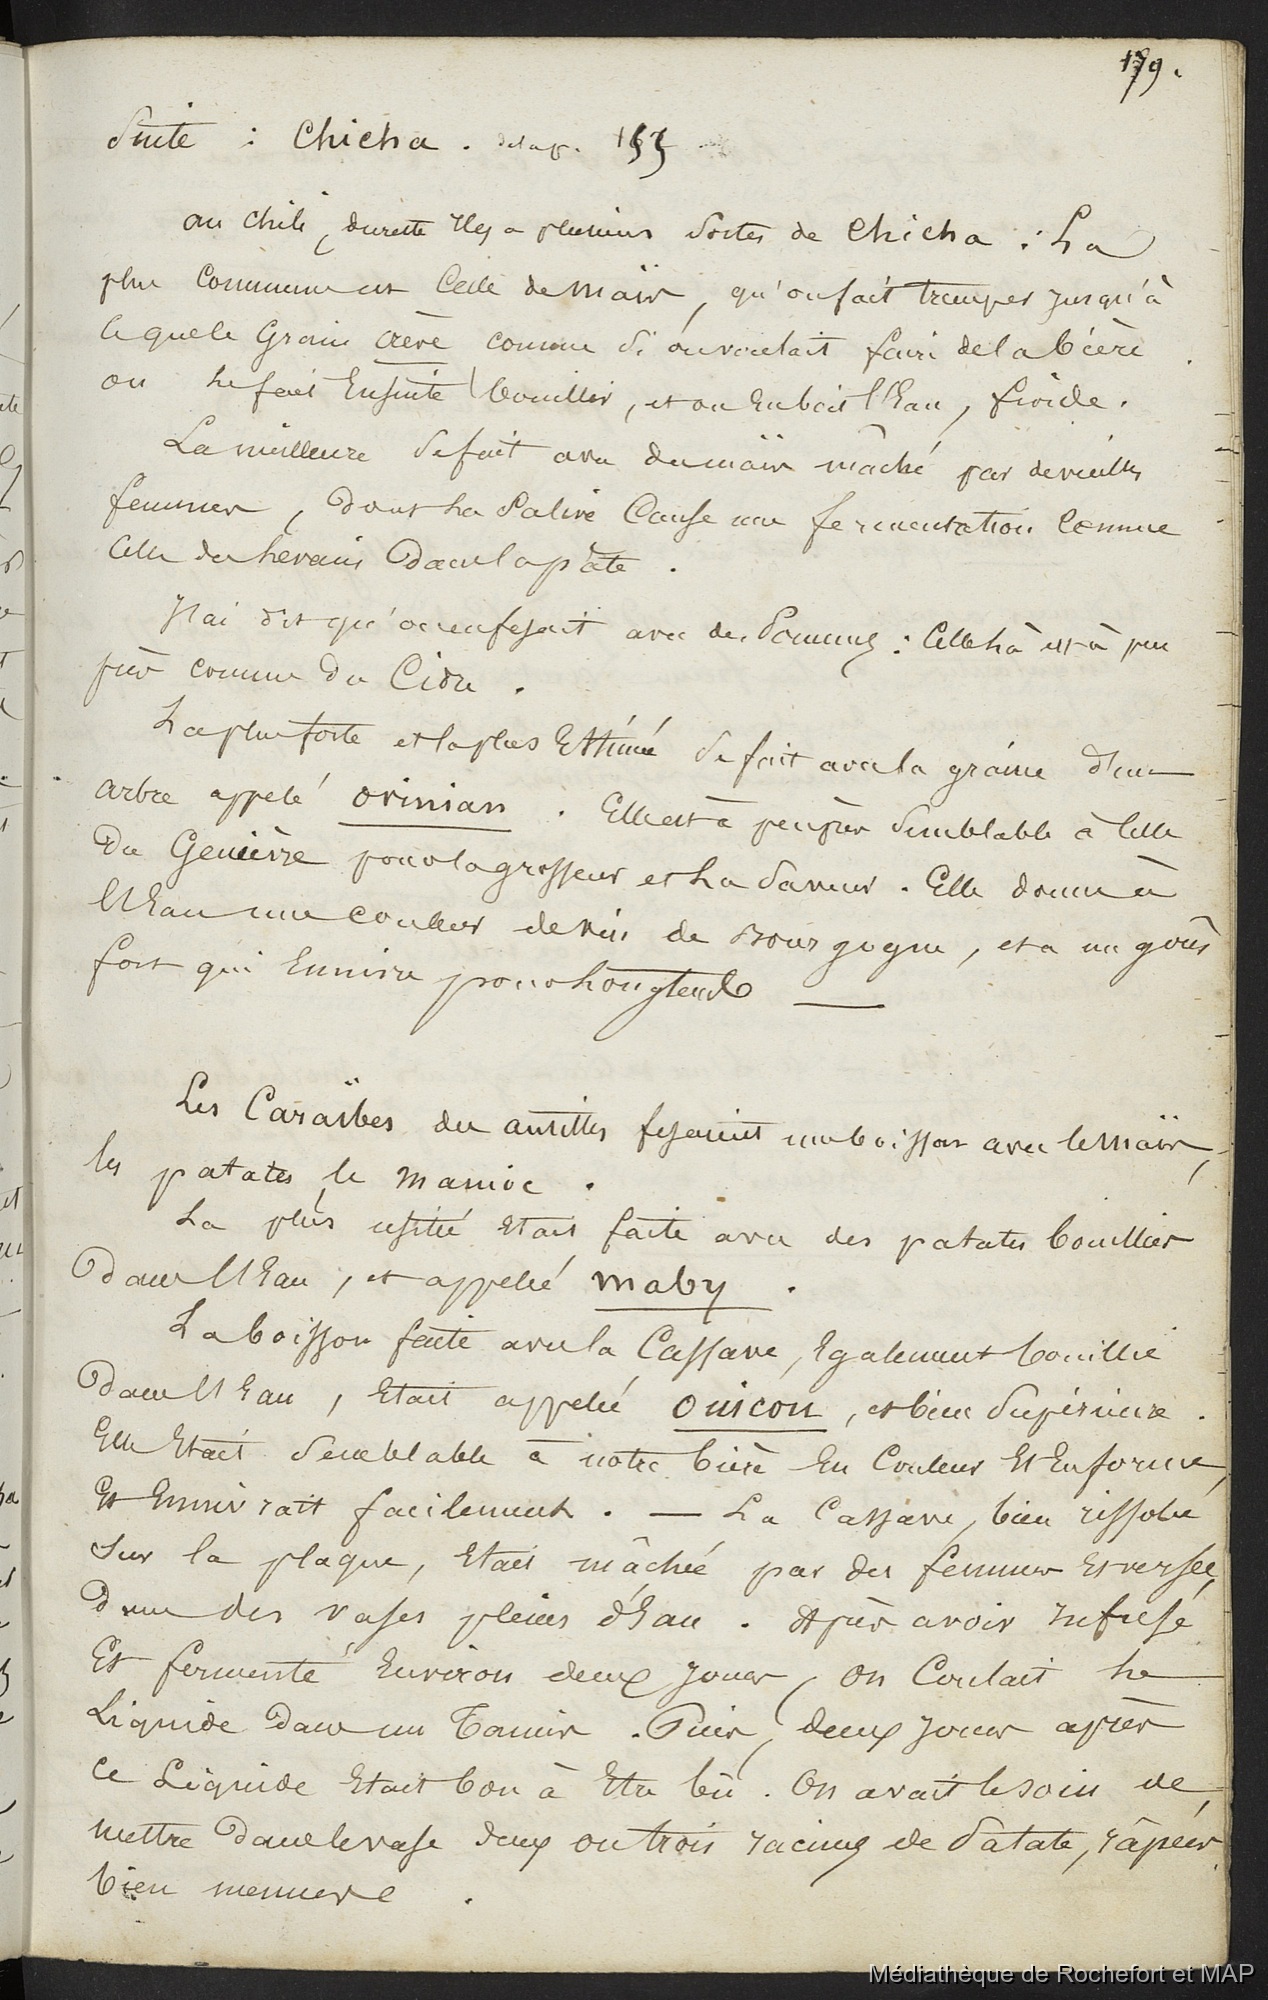 179.
Suite : Chicha . de la p. 153
au chili, dureste Ily a plusieurs Sortes de Chicha : La
plus Commune est Celle de maïs, qu'onfait tremper jusqu'à
cequele Grain crève comme Si onvoulait faire dela bière .
on le fait Ensuite bouillir, et on Enboit l'Eau, froide.
La meilleure Sefait avec dumaïs mâché par devieilles
femmes, dont La Salive Cause une fermentation Comme
Celle du Levain Dans la pâte .
J'ai dit qu'onenfesait avec des Pommes : Cellelà est à peu
près comme Du Cidre .
Laplusforte et laplus Estimée Se fait avec la graine d'un
arbre appelé ovinian . Elle est à peuprès Semblable à Celle
Du Genièvre pour la grosseur et La Saveur . Elle donne à
l'Eau une couleur devin de Bourgogne, et a un goût
fort qui Ennivre pour Longtemps —
Les Caraïbes des antilles fesaient une boisson avec le maïs,
les patates, le manioc .
La plus usitée était faite avec des patates bouillies
Dans l'Eau, et appelée maby .
La boisson faite avec la Cassave, Egalement bouillie
Dans l'Eau, Etait appelée ouicou, et bien Supérieure .
Elle Etait Semblable à notre bière En Couleur Et En force,
Et Ennivrait facilement . — La Cassave, bien rissolée
Sur la plaque, Etait mâchée par des femmes Et versée,
Dans des vases pleins d'Eau . Après avoir infusé
Et fermenté Environ deux jours, on Coulait Le
Liquide Dans un Tamis . Puis, deux jours après
Ce Liquide Etait bon à Etre bû . On avait lesoin de
mettre Dans levase deux ou trois racines de Patate, râpées
bien menues .
Médiathèque de Rochefort et MAP